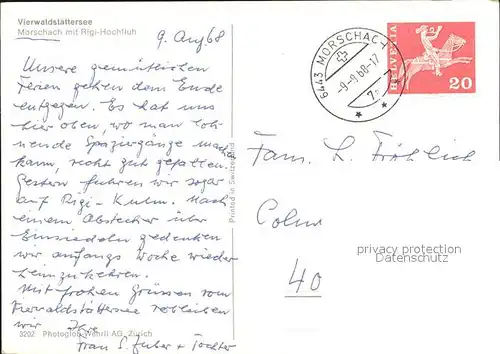 Vierwaldstättersee
Morschach mit Rigi-Hochfluh
9. Aug 68
Unsere gemütlichen
Ferien gehen dem Ende
entgegen. Es hat uns
hier oben, wo man loh-
nende Spaziergänge machen
kann, recht gut gefallen.
Gestern fuhren wir sogar
auf Rigi-Kulm. Nach
einem Abstecher über
Einsiedeln gedenken
wir anfangs Woche wieder
heimzukehren.
Mit frohen Grüssen vom
Vierwaldstättersee verbleiben
wir Ihre
Frau S. Huber + Tochter
3202 Photoglob-Wehrli AG, Zürich
Printed in Switzerland
6443 MORSCHACH
-9-9 68-17
HELVETIA
20
Fam. L. Fröhlich
privacy protection
Datenschutz
40